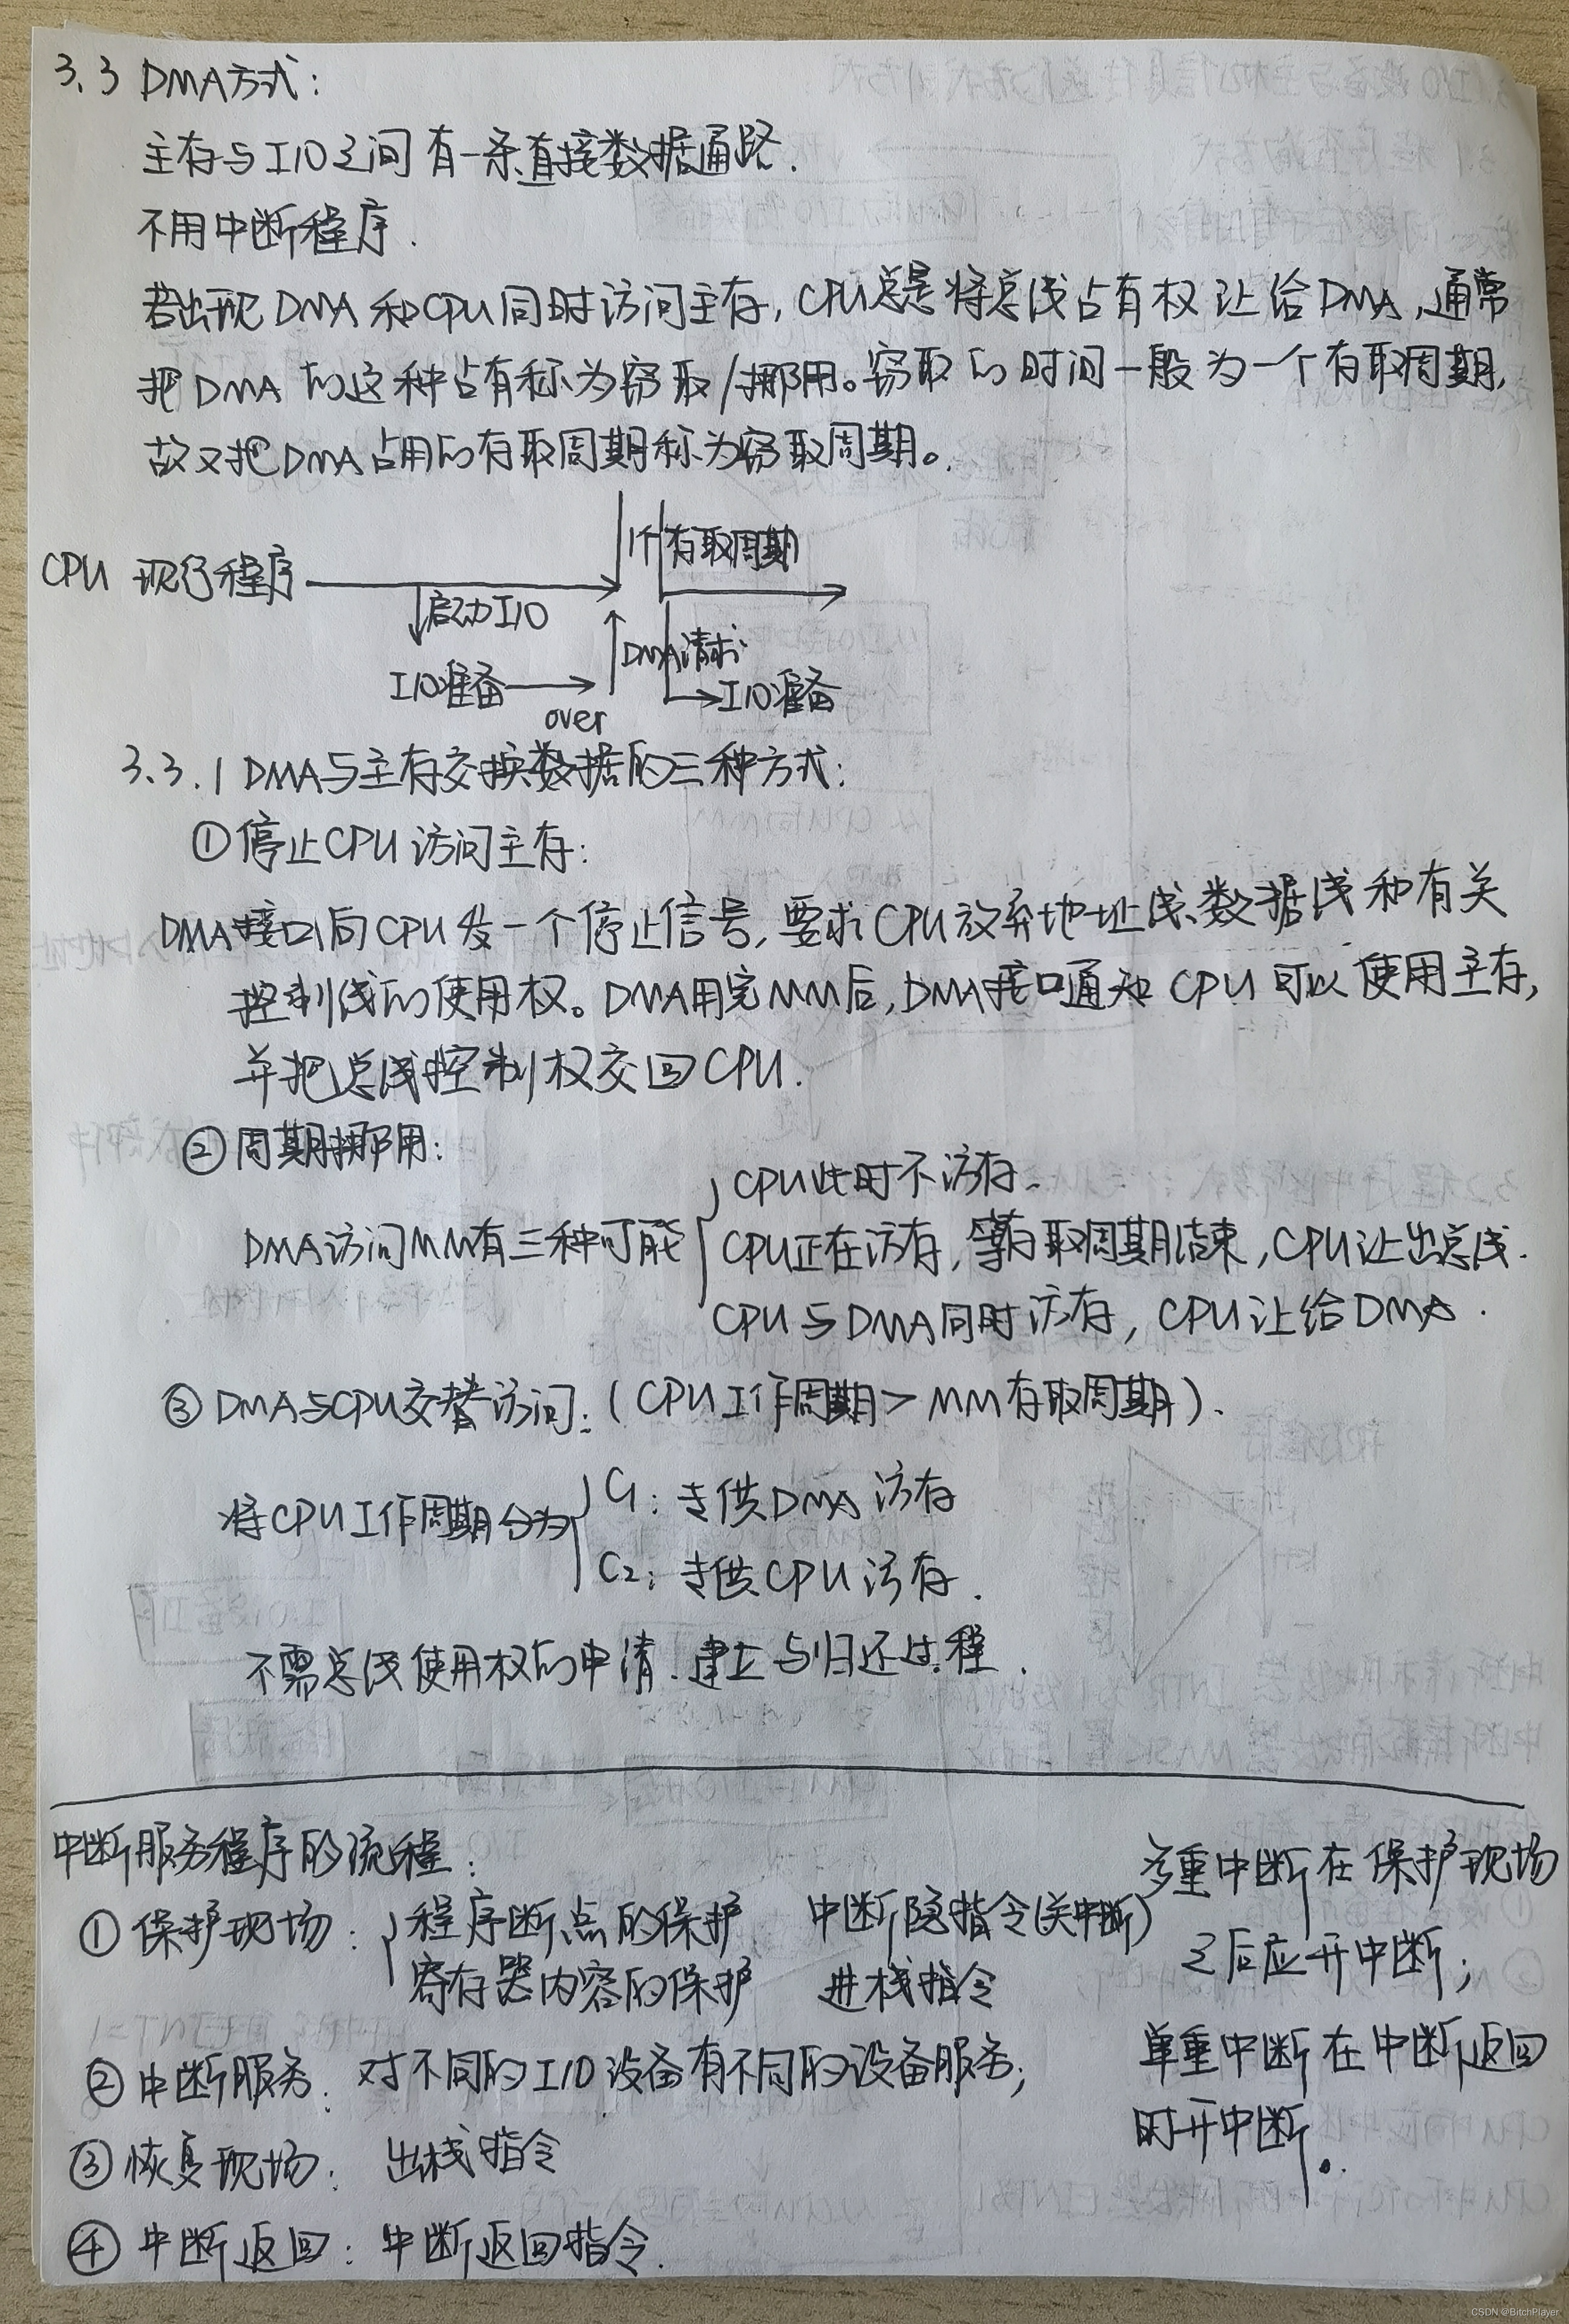 3.3 DMA方式:
主存与I/O之间有一条直接数据通路.
不用中断程序.
若出现DMA和CPU同时访问主存,CPU总是将总线占有权让给DMA,通常
把DMA的这种占有称为窃取/挪用。窃取的时间一般为一个存取周期,
故又把DMA占用的存取周期称为窃取周期。
1个存取周期
CPU 现行程序
启动I/O
DMA请求
I/O准备
I/O准备
over
3.3.1 DMA与主存交换数据的三种方式:
①停止CPU访问主存:
DMA接口向CPU发一个停止信号,要求CPU放弃地址线、数据线和有关
控制线的使用权。DMA用完MM后,DMA接口通知CPU可以使用主存,
并把总线控制权交回CPU.
②周期挪用:
CPU此时不访存.
DMA访问MM有三种可能
CPU正在访存,等存取周期结束,CPU让出总线.
CPU与DMA同时访存,CPU让给DMA.
③DMA与CPU交替访问:(CPU工作周期>MM存取周期).
C1:专供DMA访存
将CPU工作周期分为
C2:专供CPU访存.
不需总线使用权的申请、建立与归还过程.
中断服务程序的流程:
①保护现场:程序断点的保护 中断隐指令(关中断)
寄存器内容的保护 进栈指令
②中断服务:对不同的I/O设备有不同的设备服务;
③恢复现场:出栈指令
④中断返回:中断返回指令.
多重中断在保护现场
之后应开中断;
单重中断在中断返回
时开中断。
CSDN @BitchPlayer